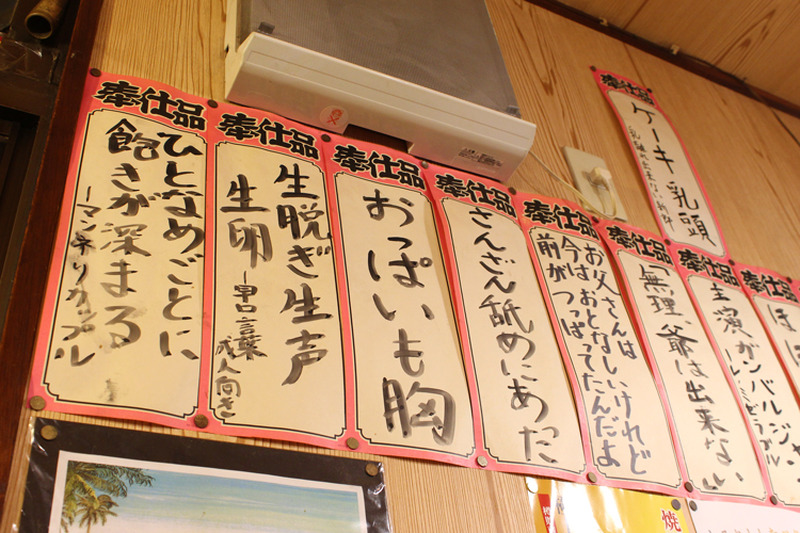 奉仕品
ひとなめごとに
飽きが深まる
ーマンネリカップル
奉仕品
生脱ぎ生声
生卵
ー早口言葉
成人向き
奉仕品
おっぱいも胸
奉仕品
さんざん舐めにあた
奉仕品
お父さんは
今はおとなしいけれど
前がつっぱってたんだよ
奉仕品
「無理、爺は出来ない
奉仕品
主演ガンバルジャ
奉仕品
奉仕品
ケーキ乳頭
焼